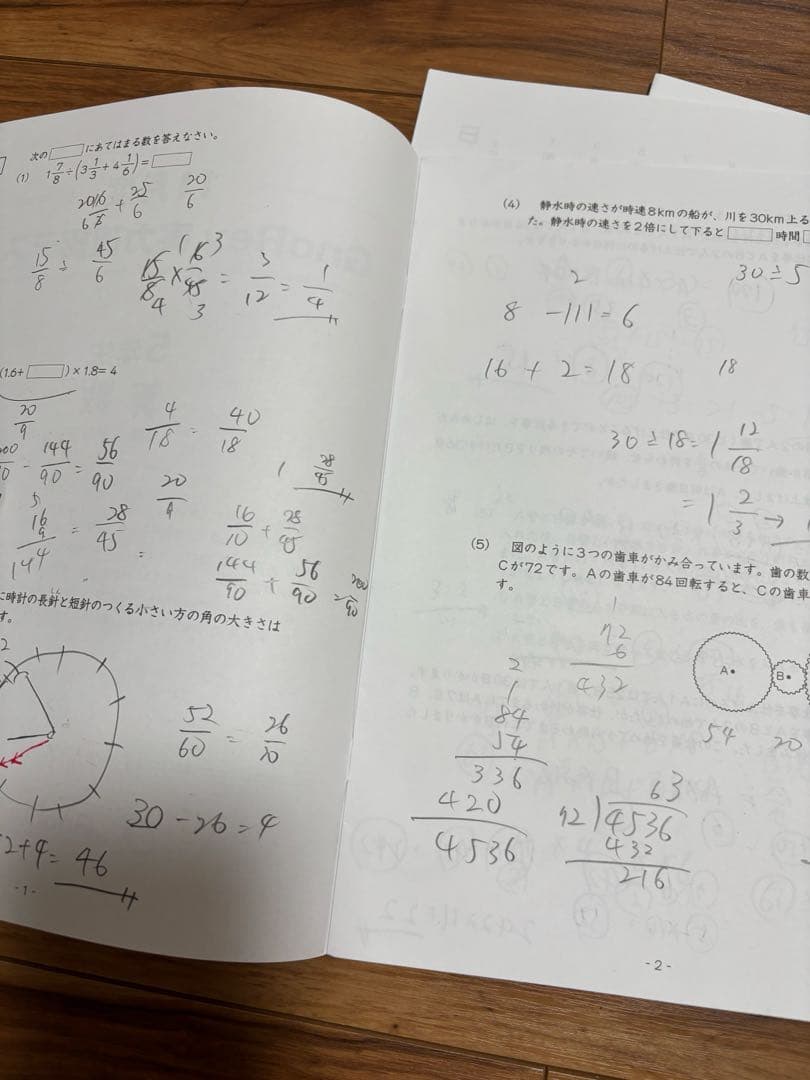 次の　　にあてはまる数を答えなさい。
(1) 1 7/8 ÷ (3 1/3 + 4 1/6) =
+ 25/6
20/6
15/8 ÷ 45/6
= 3/12 = 1/4
(1.6+　　) × 1.8= 4
20/9
4/18 = 40/18
- 144/90 = 56/90
20/9
1
= 28/45
16/10 + 28/45
144/90 + 56/90
に時計の長針と短針のつくる小さい方の角の大きさは
す。
52/60 = 26/30
30 - 26 = 4
2+4= 46
- 1 -
(4) 静水時の速さが時速8kmの船が、川を30km上る
た。静水時の速さを2倍にして下ると　　時間
2
30 ÷ 5
8 - = 6
16 + 2 = 18
18
30 ÷ 18 = 1 12/18
= 1 2/3 →
(5) 図のように3つの歯車がかみ合っています。歯の数
Cが72です。Aの歯車が84回転すると、Cの歯車
す。
1
72
6
432
A
B
54 20
2
1
84
54
336
420
4536
63
72)4536
432
216
- 2 -